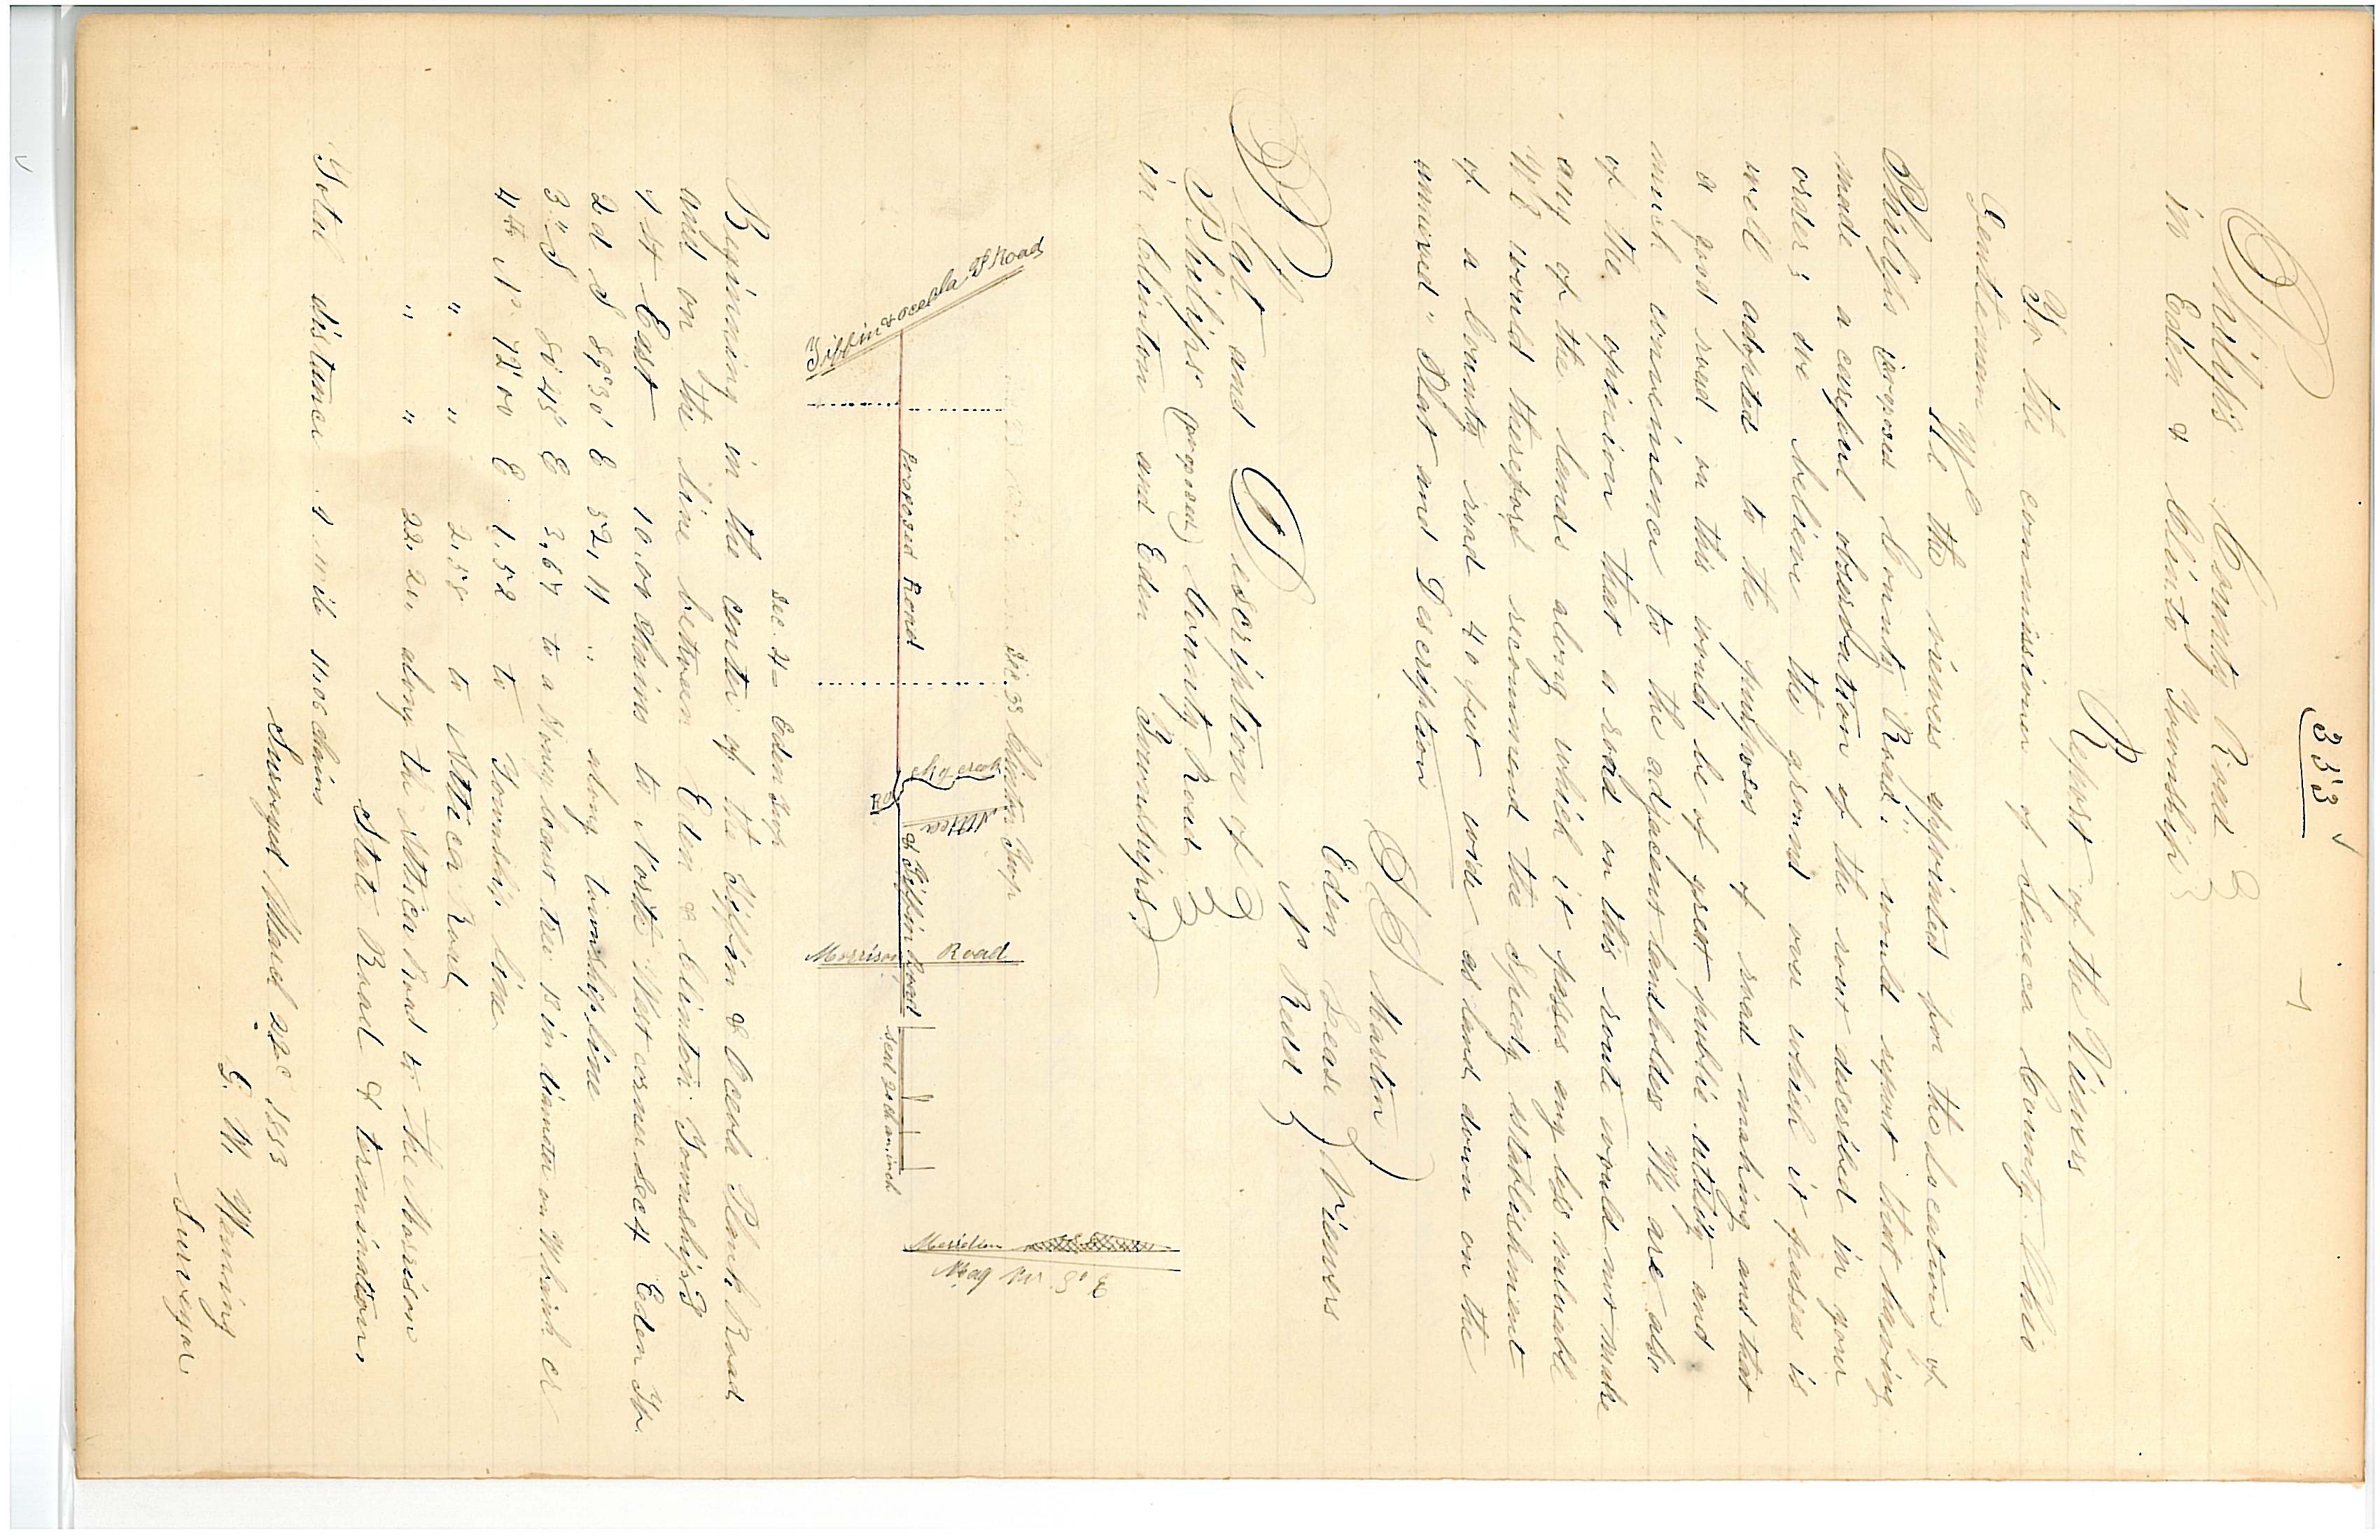 353
Philips County Road
in Eden & Clinto Township
Report of the Viewers
To the commissioner of Seneca County Ohio
Gentlemen
We the viewers appointed for the location of
Philips (proposed County Road" would report that having
made a careful observation of the rout described in your
order; we believe the ground over which it passes is
well adopted to the purposes of road making and that
a good road on this would be of great public utility and
much convenience to the adjacent landholdes We are also
of the opinion that a road on this route would not make
any of the lands along which it passes any less valuable
We would therefore recommend the speedy establishment
of a County road 40 feet wide as laid down on the
annexed" Plat and Description
S S Martin
Eden Lease } Viewers
N Reed
Plat and Description of
Philips (proposed) County Road
in Clinton and Eden Townships.
Sec 33 Clinton Twp
Tiffin & Oceola P Road
Proposed Road
Attica
& Tiffin Road
Morrison Road
Scal 20 ch an inch
Meridian
Mag Var 3° E
Sec. 4 Eden Twp
Beginning in the center of the Tiffin & Oceola Plank Road
and on the line between Eden & Clinton Townships
1st East 10.00 chains to North West corner Sec 4 Eden Tp.
2d S 89°30' E 52,11 " along township line
3" S 80°45' E 3,67 to a Honey locust tree 18 in diameter on N brink cr
4th N 72°00 E 1.52 to Township line
" " 2.58 to Attica Road
" " 22.20, along the Attica Road to the Morrison
State Road & termination.
Total distance 1 mile 11.06 chains
Surveyed March 22d 1853
G. W. Wenning
Surveyor